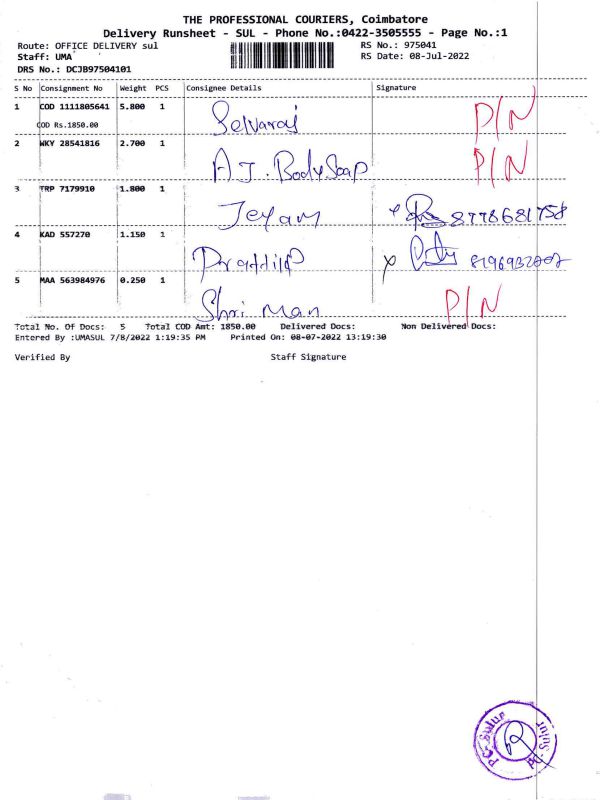 THE PROFESSIONAL COURIERS, Coimbatore
Delivery Runsheet - SUL - Phone No.:0422-3505555 - Page No.:1
Route: OFFICE DELIVERY sul RS No.: 975041
Staff: UMA RS Date: 08-Jul-2022
DRS No.: DCJB97504101
S No Consignment No Weight PCS Consignee Details Signature
1 COD 1111805641 5.800 1 Selvaraj P/N
COD Rs.1850.00
2 WKY 28541816 2.700 1 A.J. Body Soap P/N
3 TRP 7179910 1.800 1 Jeyam x 8778681758
4 KAD 557270 1.150 1 x
5 MAA 563984976 0.250 1 Shri Man P/N
Total No. Of Docs: 5 Total COD Amt: 1850.00 Delivered Docs: Non Delivered Docs:
Entered By :UMASUL 7/8/2022 1:19:35 PM Printed On: 08-07-2022 13:19:30
Verified By Staff Signature